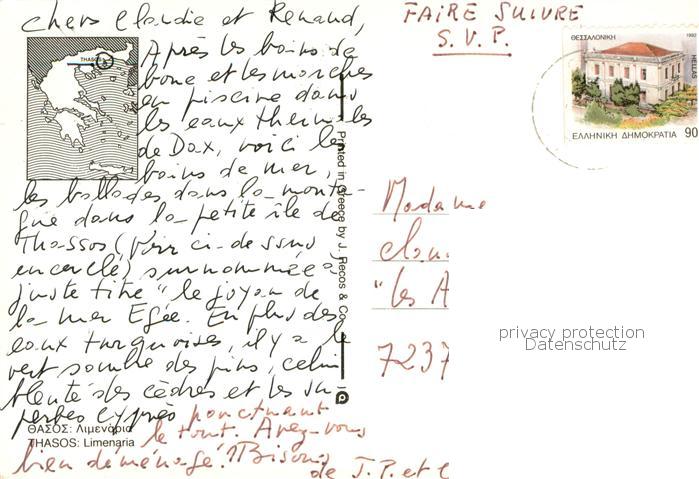 Chers Claudie et Renaud,
Après les bains de
boue et les marches
en piscine dans
les eaux thermales
de Dax, voici les
bains de mer,
les ballades dans la monta-
gne dans la petite île de
Thassos (Voir ci-dessus
encerclé) surnommée à
juste titre "le joyau de
la mer Egée. En plus des
eaux turquoises, il y a le
vert sombre des pins, celui
bleuté des cèdres et les su-
perbes cyprès ponctuant
le tout. Avez-vous
bien déménagé? Bisous
de J.P. et
THASOS
ΘΑΣΟΣ: Λιμενάρια
THASOS: Limenaria
Printed in Greece by J. Recos & Co
FAIRE SUIVRE
S.V.P.
ΘΕΣΣΑΛΟΝΙΚΗ 1992
HELLAS
ΕΛΛΗΝΙΚΗ ΔΗΜΟΚΡΑΤΙΑ 90
Madame
"les A
7237
privacy protection
Datenschutz